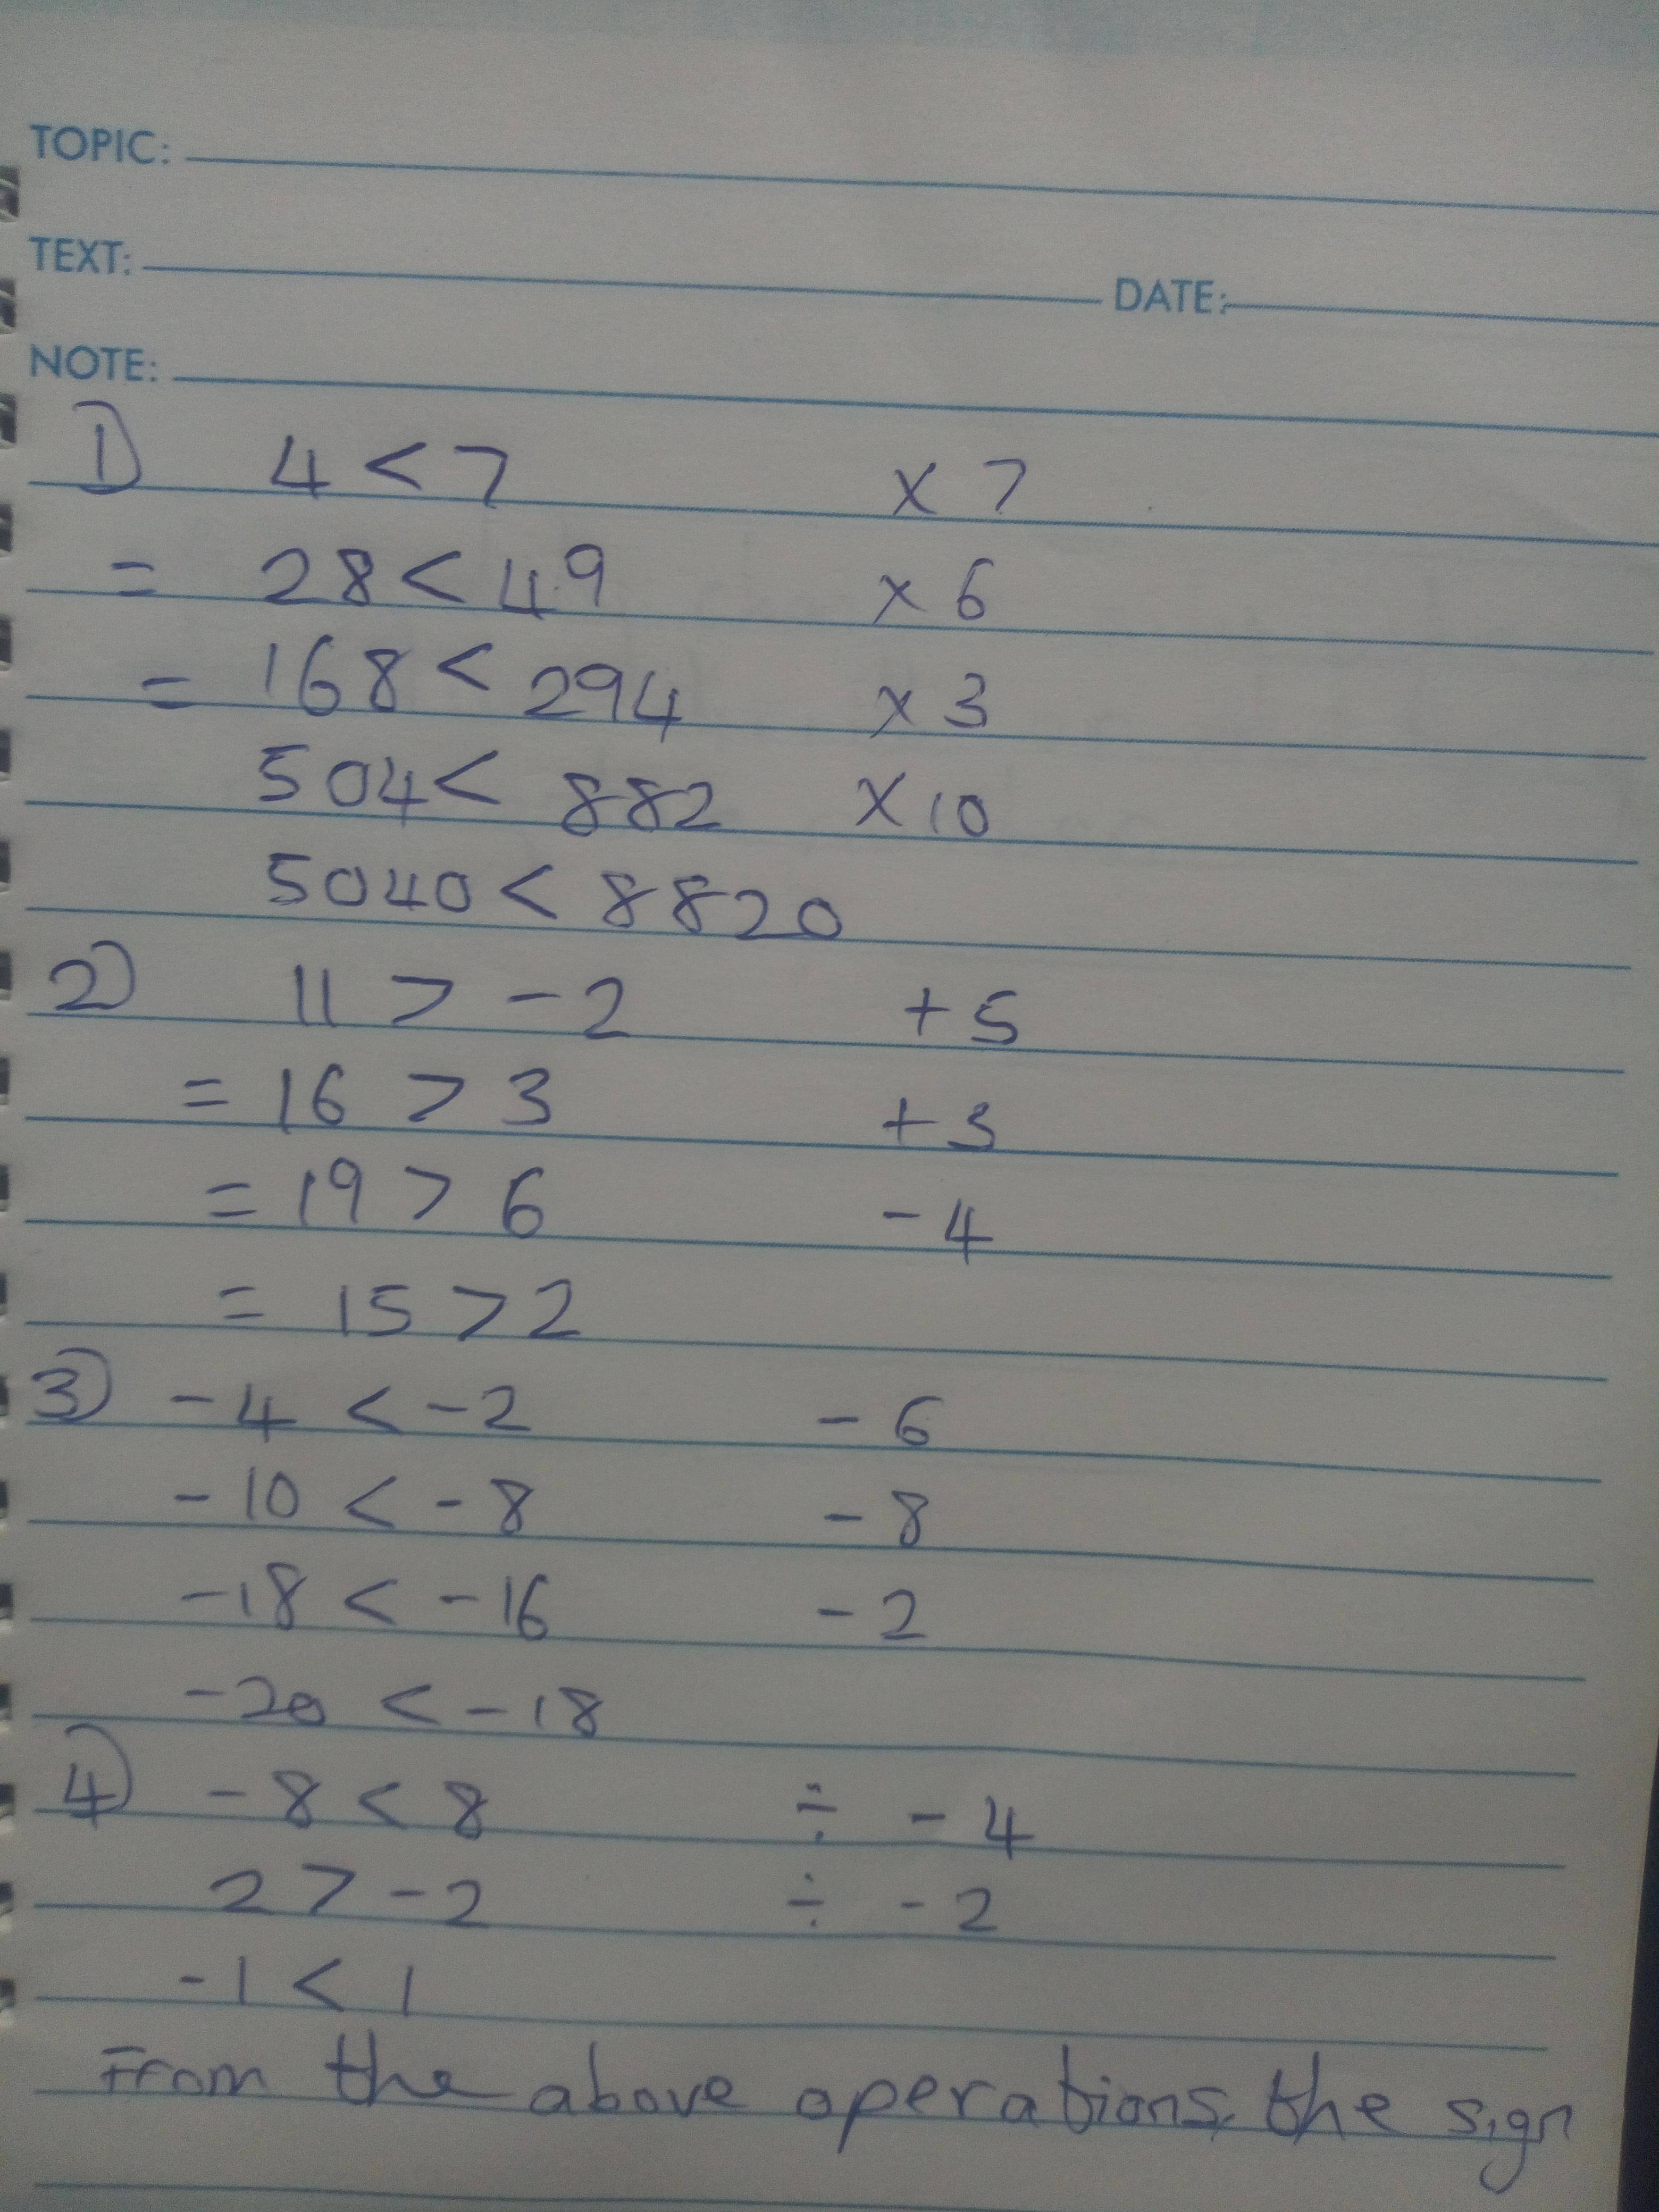 TOPIC:
TEXT: DATE:
NOTE:
1) 4 < 7 × 7
= 28 < 49 × 6
= 168 < 294 × 3
504 < 882 × 10
5040 < 8820
2) 11 > - 2 + 5
= 16 > 3 + 3
= 19 > 6 - 4
= 15 > 2
3) - 4 < - 2 - 6
- 10 < - 8 - 8
- 18 < - 16 - 2
- 20 < - 18
4) - 8 < 8 ÷ - 4
2 > - 2 ÷ - 2
- 1 < 1
From the above operations, the sign